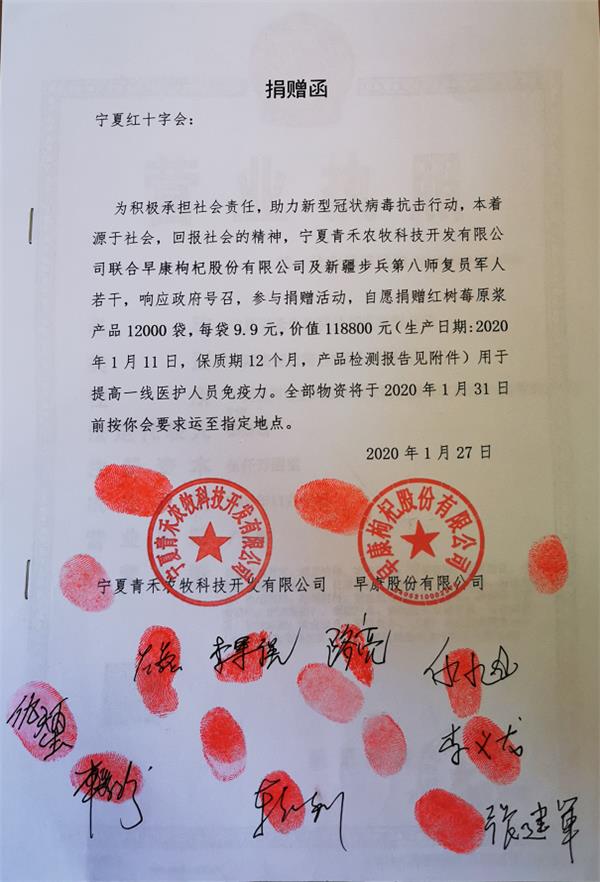 捐赠函
宁夏红十字会：
为积极承担社会责任，助力新型冠状病毒抗击行动，本着
源于社会，回报社会的精神，宁夏青禾农牧科技开发有限公
司联合早康枸杞股份有限公司及新疆步兵第八师复员军人
若干，响应政府号召，参与捐赠活动，自愿捐赠红树莓原浆
产品 12000 袋，每袋 9.9 元，价值 118800 元（生产日期：2020
年 1 月 11 日，保质期 12 个月，产品检测报告见附件）用于
提高一线医护人员免疫力。全部物资将于 2020 年 1 月 31 日
前按你会要求运至指定地点。
2020 年 1 月 27 日
宁夏青禾农牧科技开发有限公司
早康枸杞股份有限公司
宁夏青禾农牧科技开发有限公司 早康股份有限公司
路亮
李义龙
张建军